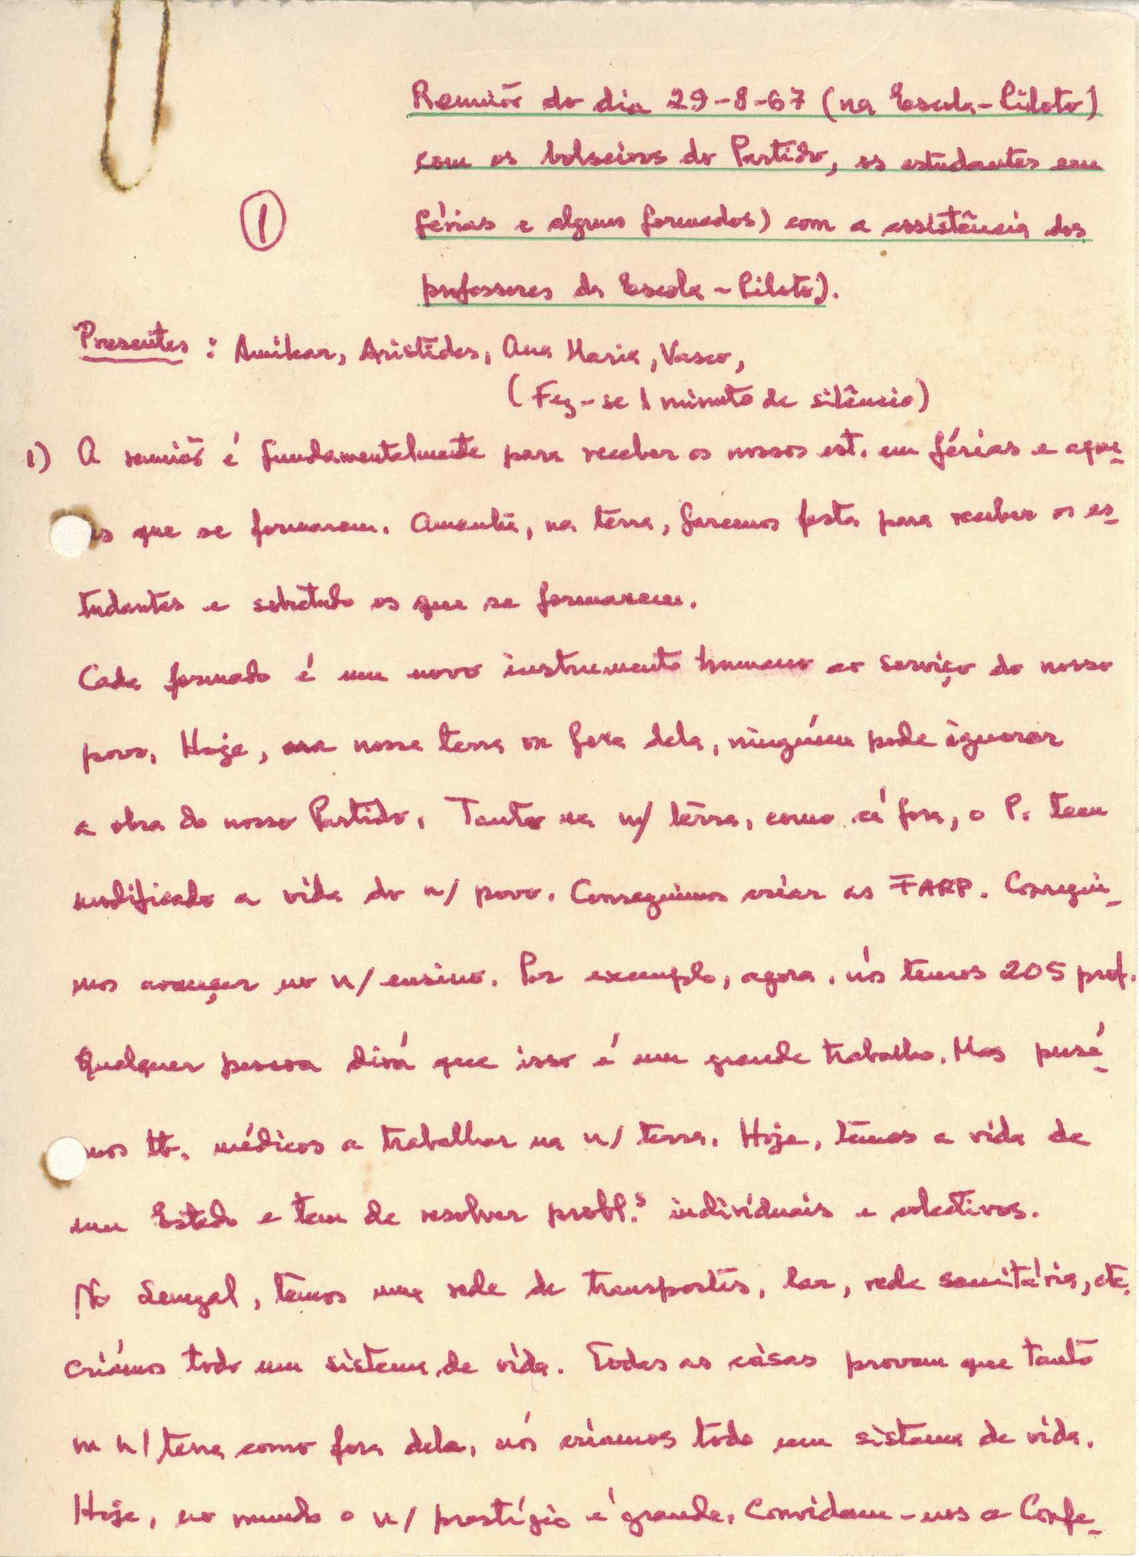 Reunião do dia 29-8-67 (na Escola-Piloto)
com os bolseiros do Partido, os estudantes em
férias e alguns formados) com a assistência dos
professores da Escola-Piloto).
1
Presentes: Amílcar, Aristides, Ana Maria, Vasco,
(Fez-se 1 minuto de silêncio)
1) A reunião é fundamentalmente para receber os nossos est. em férias e aque-
es que se formaram. Amanhã, na terra, faremos festa para receber os es-
tudantes e sobretudo os que se formarem.
Cada formado é um novo instrumento humano ao serviço do nosso
povo. Hoje, na nossa terra ou fora dela, ninguém pode ignorar
a obra do nosso Partido. Tanto na n/ terra, como cá fora, o P. tem
modificado a vida do n/ povo. Conseguimos criar as FARP. Consegui-
mos avançar no n/ ensino. Por exemplo, agora, nós temos 205 prof.
Qualquer pessoa dirá que isso é um grande trabalho. Mas puse-
mos tb. médicos a trabalhar na n/ terra. Hoje, temos a vida de
um Estado e tem de resolver probl.s individuais e colectivos.
No Senegal, temos uma rede de transportes, lar, rede sanitária, etc.
criámos todo um sistema de vida. Todas as coisas provam que tanto
na n/ terra como fora dela, nós criamos todo um sistema de vida.
Hoje, no mundo o n/ prestígio é grande. Convidam-nos a Confe-